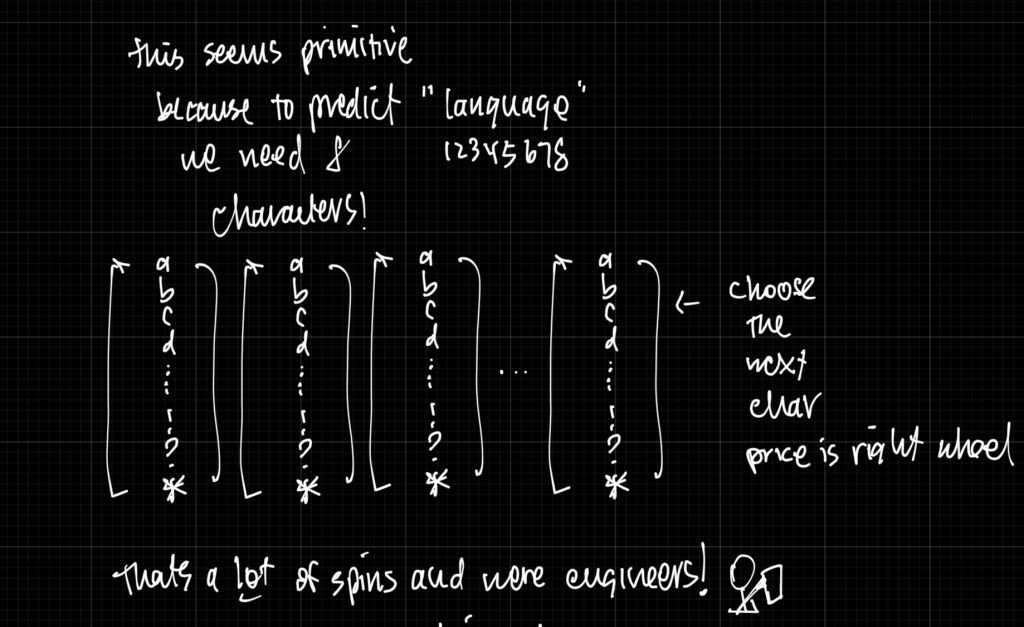 this seems primitive
because to predict "language"
we need 8 12345678
characters!
a a a a
b b b b ← choose
c c c c the
d d d d next
⋮ ⋮ ⋮ ... ⋮ char
? ? ? ? price is right wheel
* * * *
thats a lot of spins and were engineers!